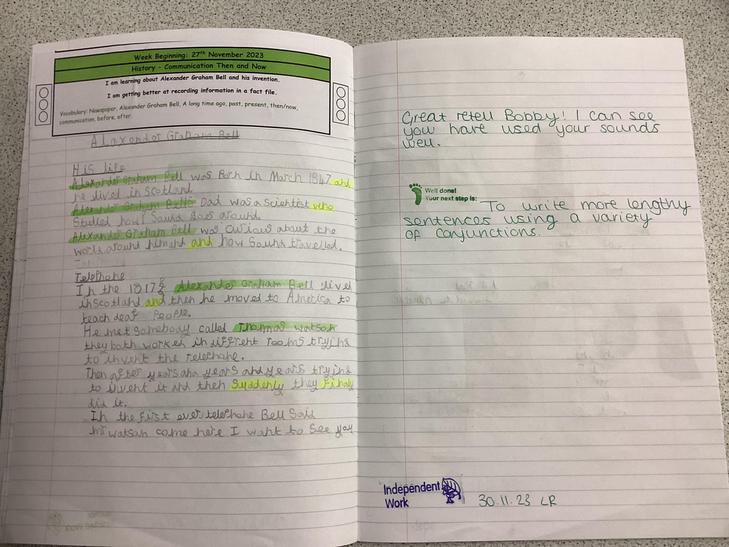 Week Beginning: 27th November 2023
History - Communication Then and Now
I am learning about Alexander Graham Bell and his invention.
I am getting better at recording information in a fact file.
Vocabulary: Newspaper, Alexander Graham Bell, A long time ago, past, present, then/now,
communication, before, after.
Alaxander Graham Bell
His life
Alexander Graham Bell was Born in March 1847 and
he lived in Scotland
Alexander Graham Bells Dad was a Scientist who
Studed how Sound around
Alexander Graham Bell was Curious about the
world around him and how Sound travelled.
Telephone
In the Alexander Graham Bell lived
in Scotland and then he moved to America to
teach deaf People.
He met Somebody called Thomas watson
they both worked in different rooms trying
to invent the telephone.
Then after years and years and years trying
to invent it and then Suddenly they
did it.
In the First ever telephone Bell Said
mr watson come here I want to See you
Great retell Bobby! I can see
you have used your sounds
well.
Well done!
Your next step is: To write more lengthy
sentences using a variety
of conjunctions.
Independent
Work
30.11.23 LR